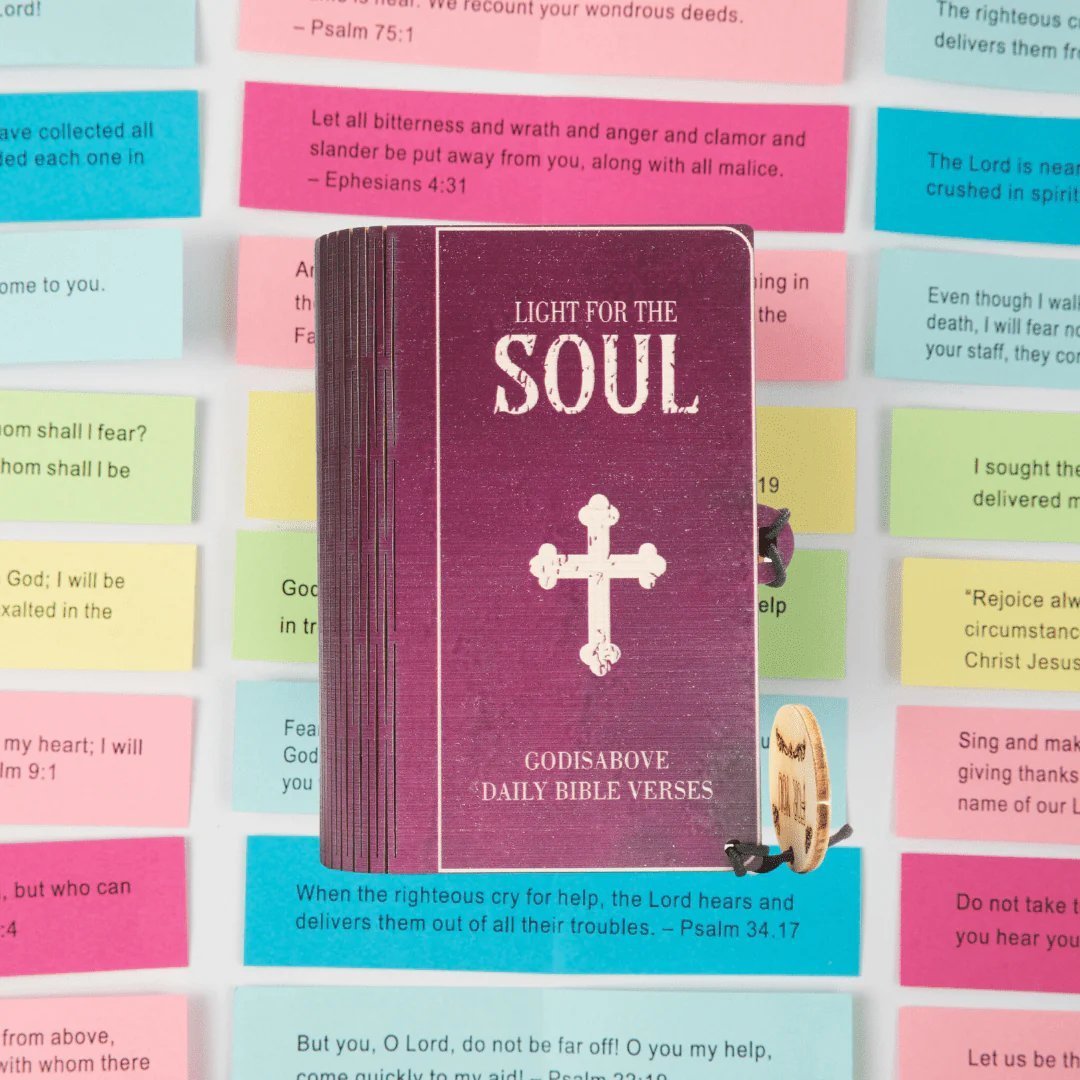 Lord!
is near. We recount your wondrous deeds.
– Psalm 75:1
The righteous
delivers them
have collected all
each one in
Let all bitterness and wrath and anger and clamor and
slander be put away from you, along with all malice.
– Ephesians 4:31
The Lord is near
crushed in spirit
to you.
in
the
Even though I walk
death, I will fear
your staff, they
LIGHT FOR THE
SOUL
shall I fear?
shall I be
19
I sought the
delivered
God; I will be
in the
God
in
help
"Rejoice
Christ Jesus
my heart; I will
9:1
God
you
Sing and
giving thanks
name of our
GODISABOVE
DAILY BIBLE VERSES
, but who can
:4
When the righteous cry for help, the Lord hears and
delivers them out of all their troubles. – Psalm 34.17
Do not take
you hear
from above,
with whom there
But you, O Lord, do not be far off! O you my help,
come quickly to my aid! – Psalm 22:19
Let us be